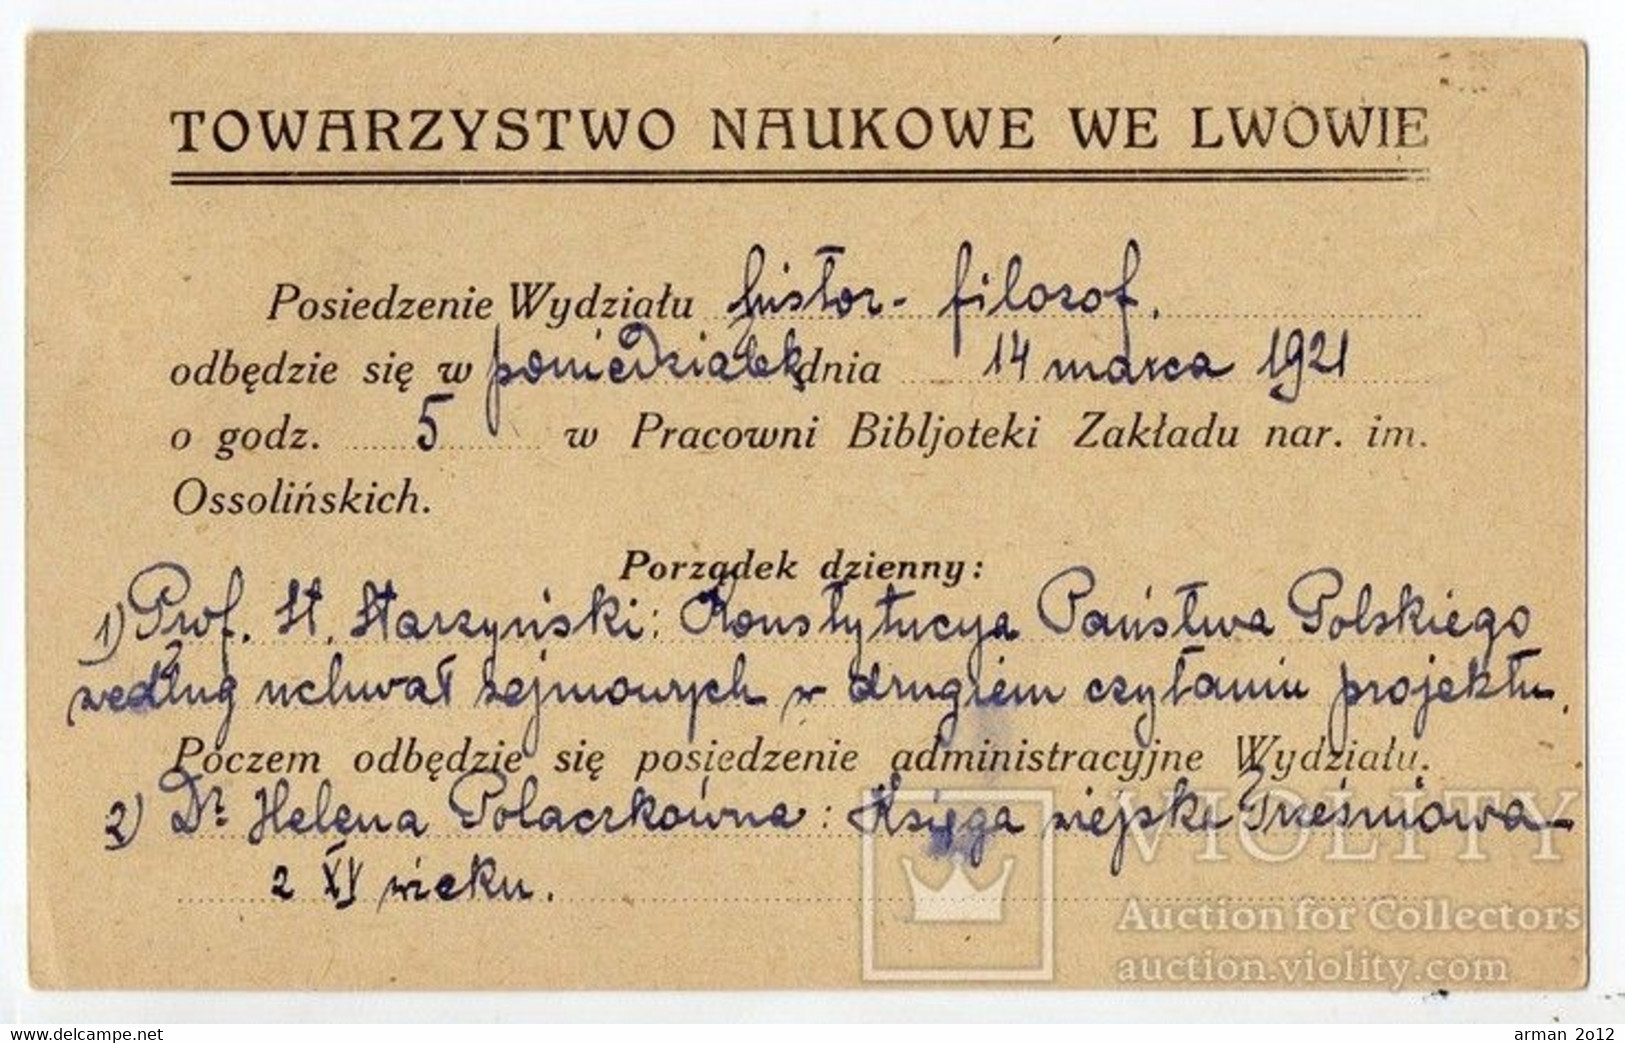 TOWARZYSTWO NAUKOWE WE LWOWIE
Posiedzenie Wydziału histor- filozof.
odbędzie się w poniedziałek dnia 14 marca 1921
o godz. 5 w Pracowni Bibljoteki Zakładu nar. im.
Ossolińskich.
Porządek dzienny:
1) Prof. St. Starzyński: Konstytucya Państwa Polskiego
według uchwał sejmowych w drugiem czytaniu projektu.
Poczem odbędzie się posiedzenie administracyjne Wydziału.
2) Dr Helena Polaczkówna: Księga wiejska Trześniowa
z XV wieku.
VIOLITY
Auction for Collectors
auction.violity.com
www.delcampe.net
arman_2o12